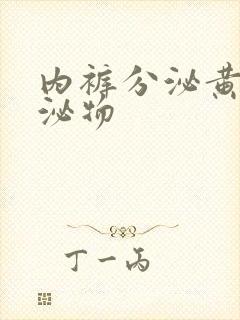 内裤分泌黄
泌物
丁一丙